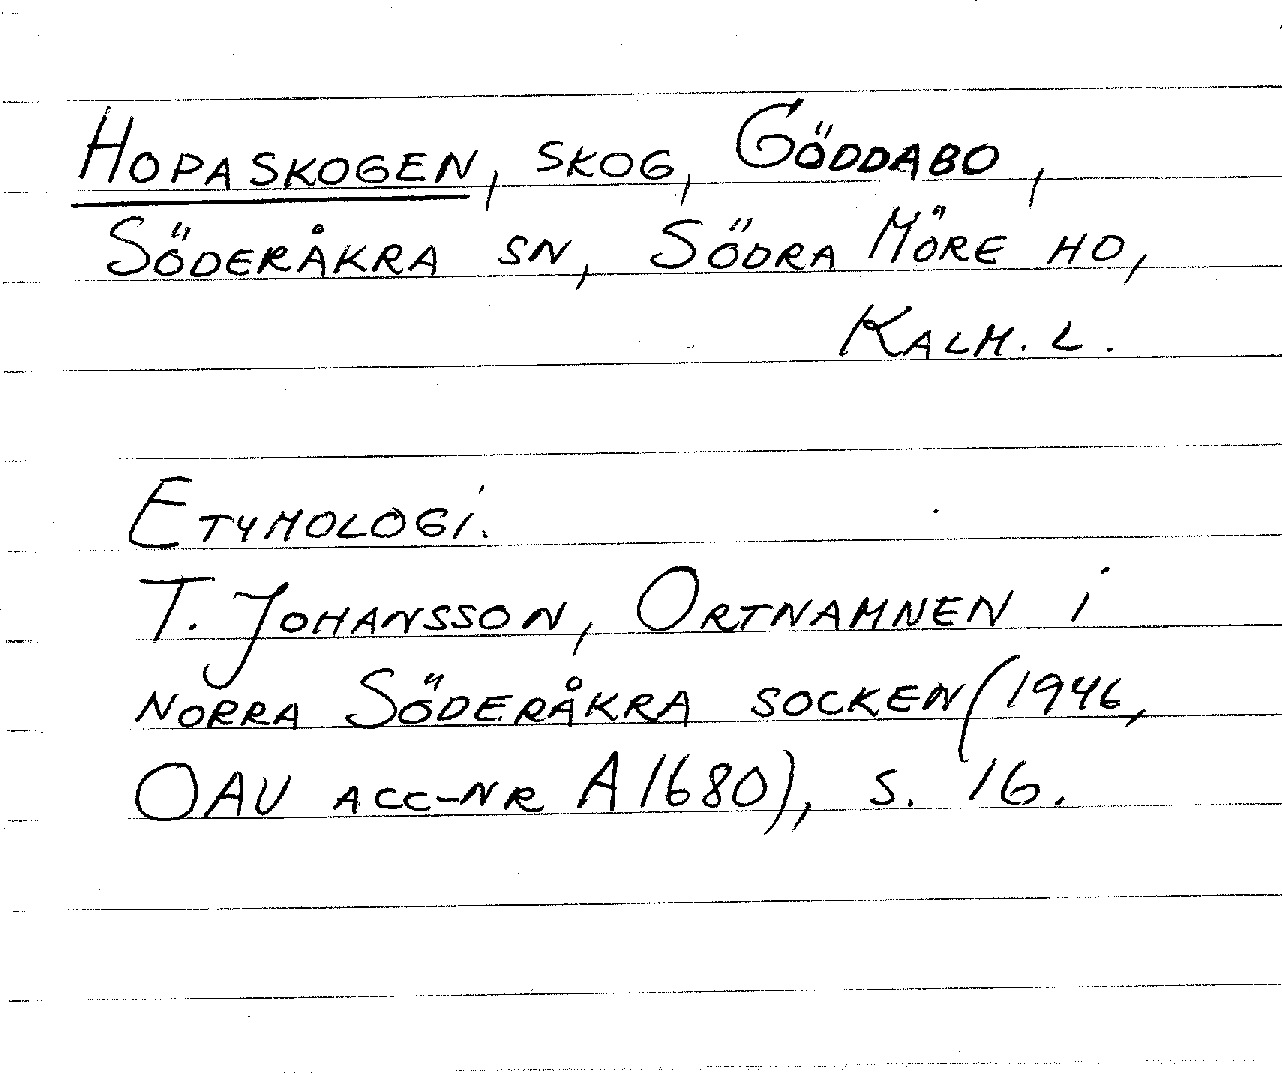 HOPASKOGEN, SKOG, GÖDDABO,
SÖDERÅKRA SN, SÖDRA MÖRE HD,
KALM. L.
ETYMOLOGI.
T. JOHANSSON, ORTNAMNEN I
NORRA SÖDERÅKRA SOCKEN (1946,
OAU ACC-NR A1680), S. 16.